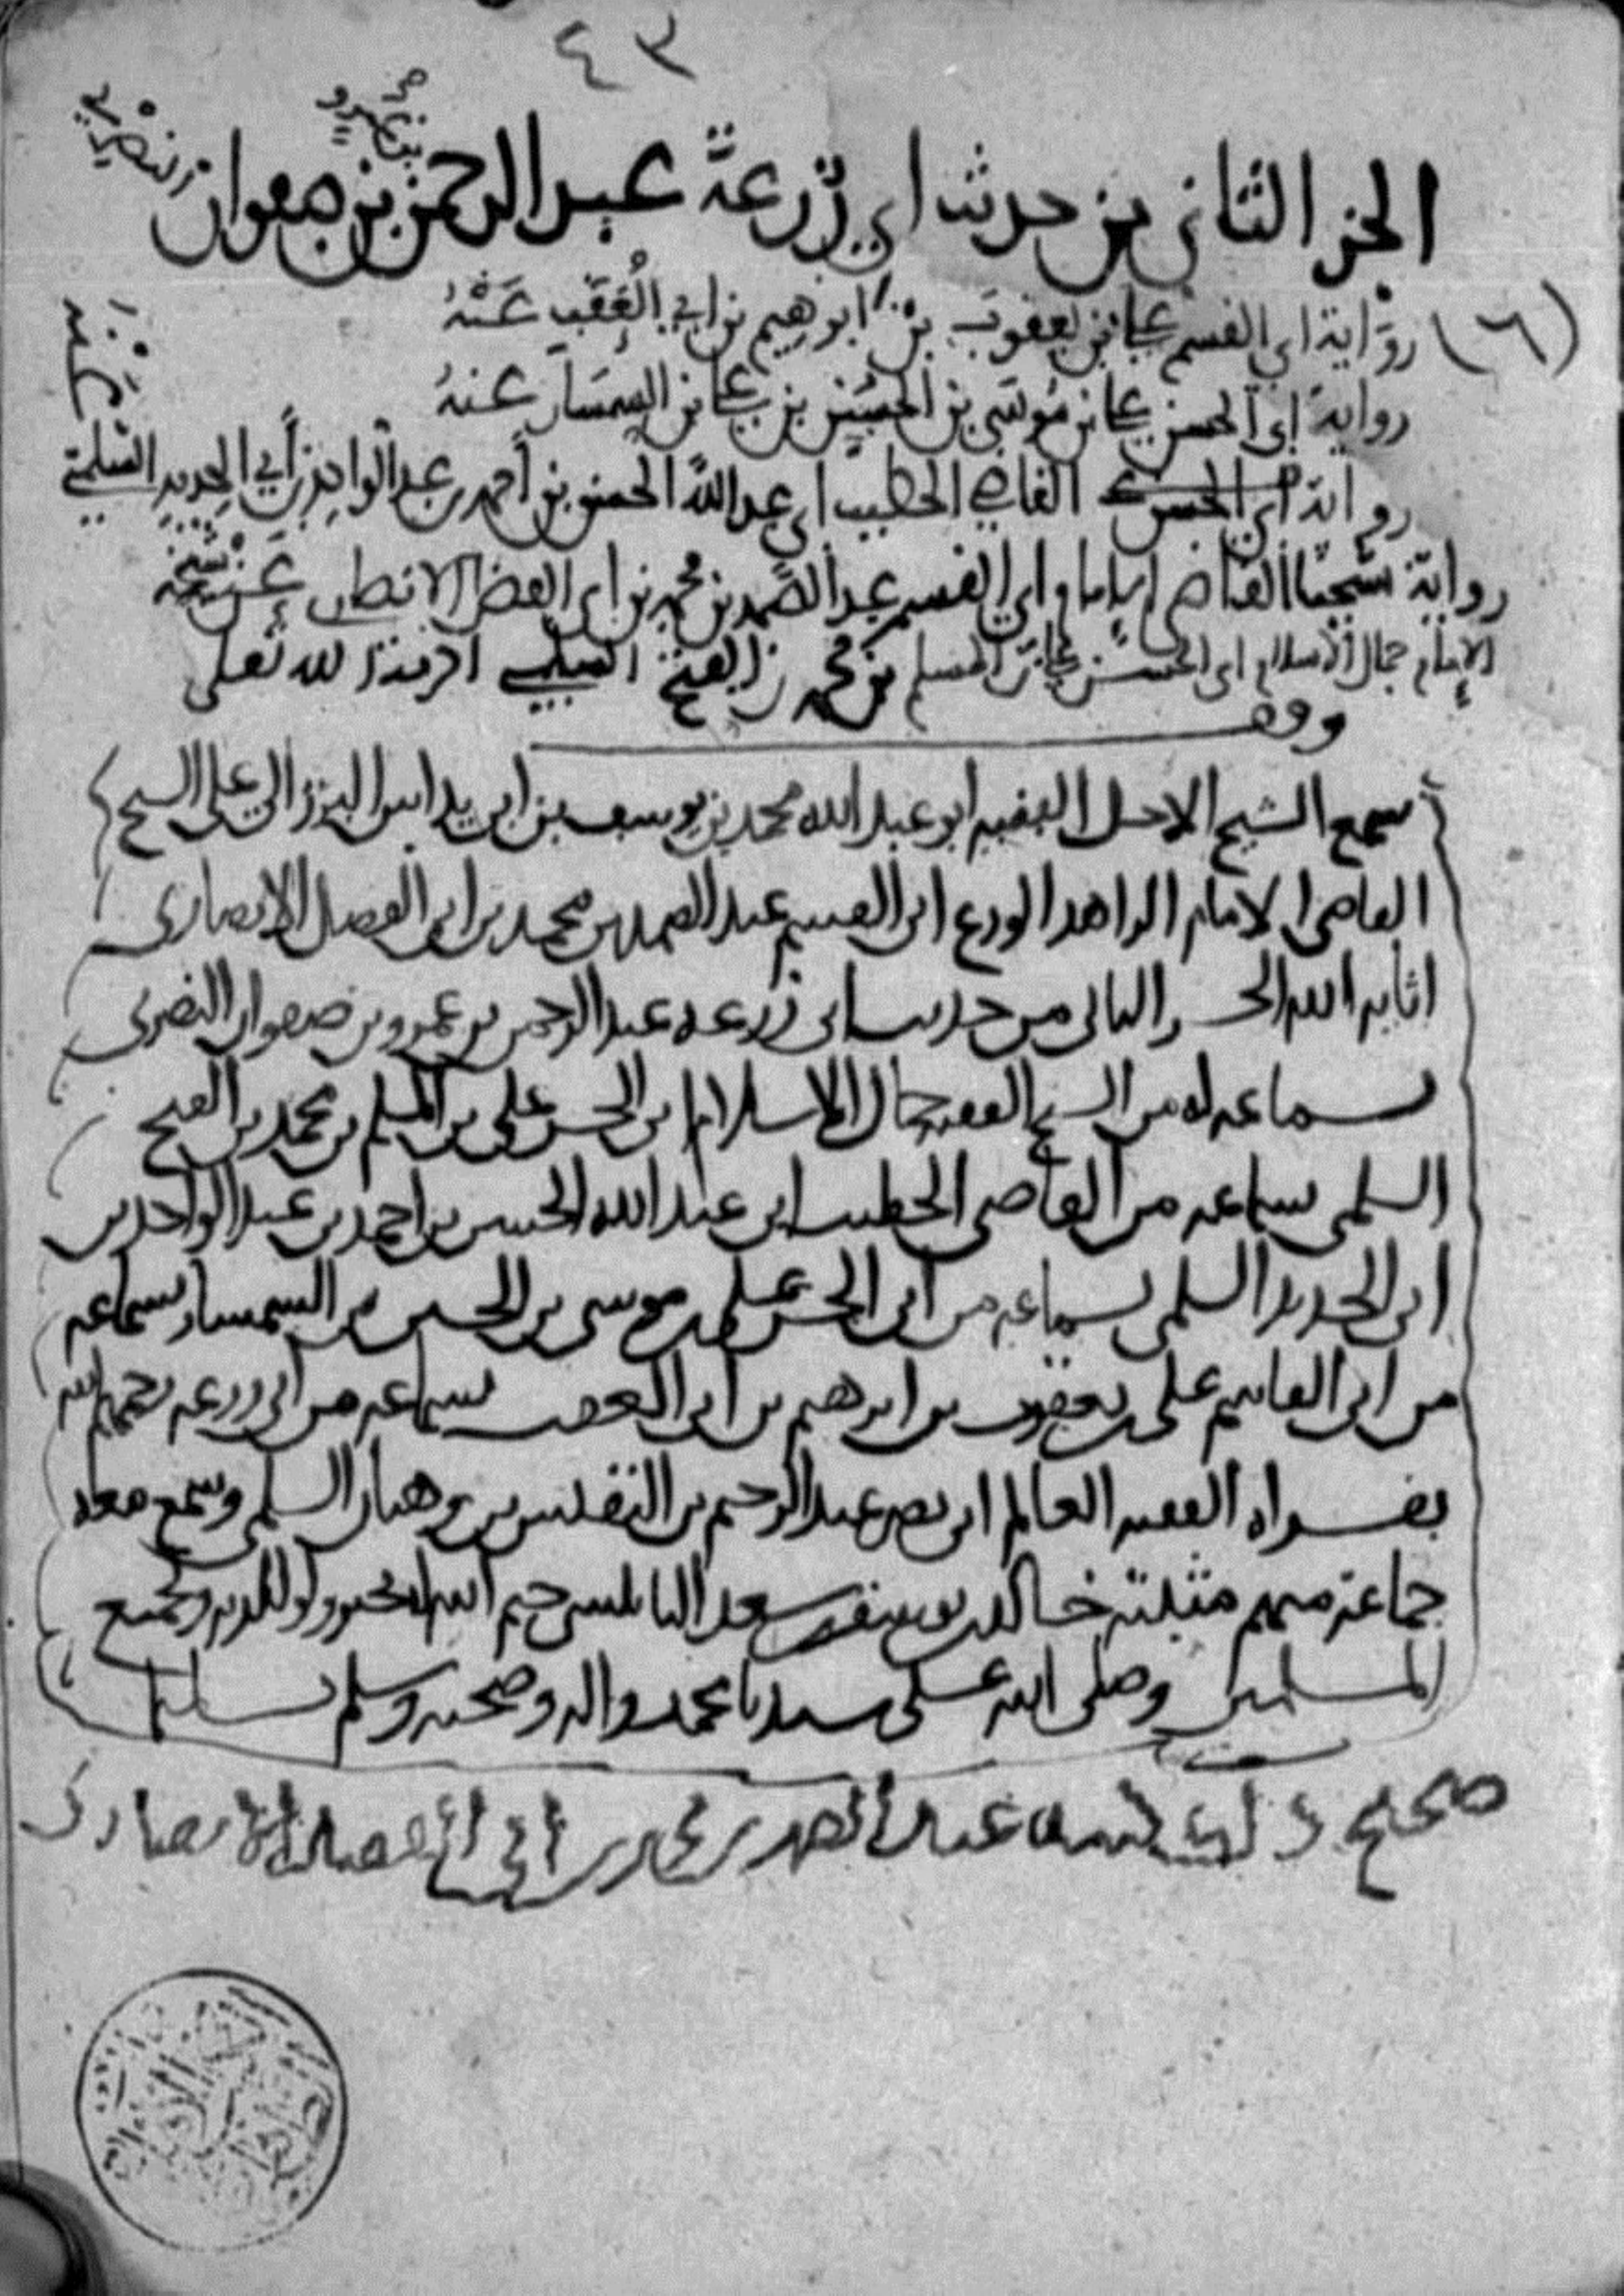 ٤٣
الجزء الثاني من حديث ابي زرعة عبد الرحمن بن عمرو بن صفوان النصري
(٦) رواية ابي القسم علي بن يعقوب بن ابرهيم بن ابي العقب عنه
رواية ابي الحسن علي بن موسى بن الحسين بن علي بن السمسار عنه
رواية القاضي الخطيب ابي عبد الله الحسن بن أحمد بن عبد الواحد بن أبي الحديد السلمي
رواية شيخنا القاضي الامام ابي القسم عبد الصمد بن محمد بن ابي الفضل الانصاري عن شيخه
الإمام جمال الاسلام ابي الحسن علي بن المسلم بن محمد بن الفتح السلمي
وقف
سمع الشيخ الاجل الفقيه ابو عبد الله محمد بن يوسف بن البرزالي على الشيخ
القاضي الامام الزاهد الورع ابي القسم عبد الصمد بن محمد بن ابي الفضل الانصاري
اثابه الله الجزء الثاني من حديث ابي زرعه عبد الرحمن بن عمرو بن صفوان النصري
بسماعه له من الشيخ الفقيه جمال الاسلام ابي الحسن علي بن المسلم بن محمد بن الفتح
السلمي بسماعه من القاضي الخطيب ابي عبد الله الحسن بن احمد بن عبد الواحد بن
ابي الحديد السلمي بسماعه من ابي الحسن علي بن موسى بن الحسين بن السمسار بسماعه
من ابي القاسم علي بن يعقوب بن ابرهيم بن ابي العقب بسماعه من ابي زرعه رحمهم الله
بقراه الفقيه العالم ابي نصر عبد الرحيم بن النفيس بن وهبان السلمي وسمع معه
جماعة منهم مثبته خالد بن يوسف بن سعد النابلسي ختم الله له بخير ولوالديه ولجميع
المسلمين وصلى الله على سيدنا محمد واله وصحبه وسلم تسليما
صحيح ذلك كتبه عبد الصمد بن محمد بن أبي الفضل الأنصاري